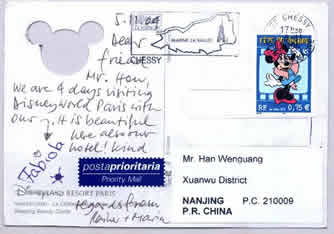 5.11.04
CHESSY
17H30
MARNE LA VALLÉE
CHESSY
RF 0,75 €
Dear
friend
Mr. Han,
We are 4 days visiting
DisneyWorld Paris with
our
It is beautiful
here also our
hotel! Kind
Fabiola
postaprioritaria
Priority Mail
regards from
+ Maria
DISNEYLAND RESORT PARIS
Sleeping Beauty Castle
Mr. Han Wenguang
Xuanwu District
NANJING P.C. 210009
P.R. CHINA